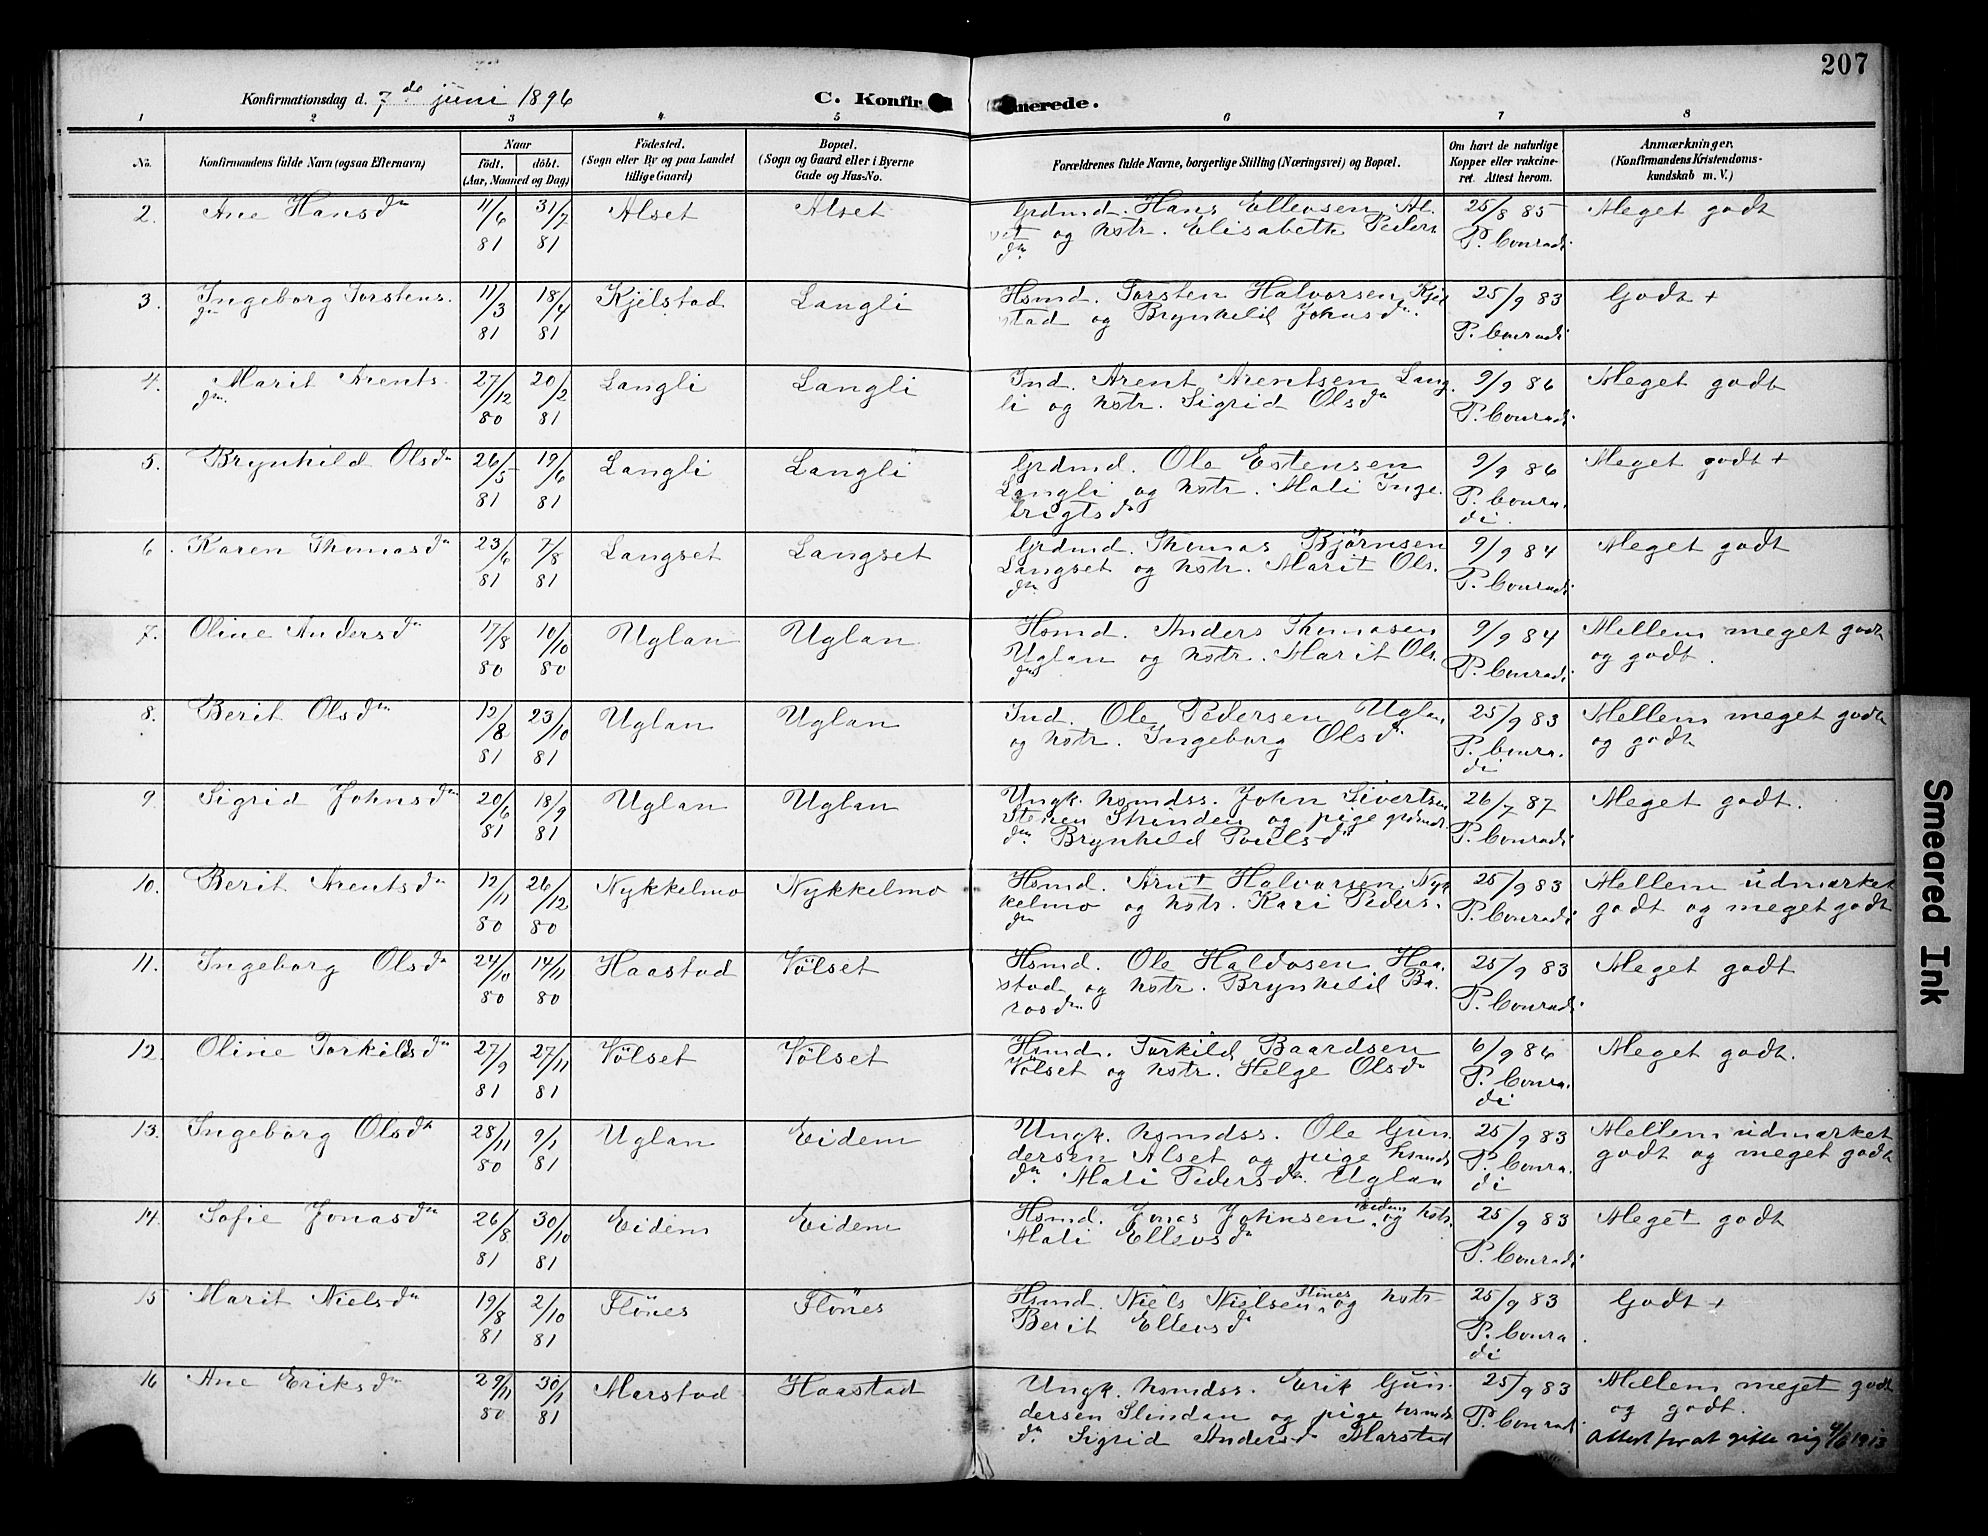 207
Konfirmationsdag d. 7de juni 1896 C. Konfir merede.
1 2 3 4 5 6 7 8
No. Konfirmandens fulde Navn (ogsaa Efternavn) Naar født. døbt. (Aar, Maaned og Dag) Födested. (Sogn eller By og paa Landet tillige Gaard) Bopæl. (Sogn og Gaard eller i Byerne Gade og Hus-No. Forældrenes fulde Navne, borgerlige Stilling (Næringsvei) og Bopæl. Om havt de naturlige Kopper eller vakcineret. Attest herom. Anmærkninger. (Konfirmandens Kristendomskundskab m. V.)
2. Ane Hansdn 11/6 81 31/7 81 Alset Alset Grdmd. Hans Ellevsen Al-
set og hstr. Elisabeth Peders
dn 25/8 85 P. Conradi Meget godt
3. Ingeborg Torstens.
dn 11/3 81 18/4 81 Kjelstad Langli Hsmd. Torsten Halvorsen Kjel
stad og Brynhild Johnsdn. 25/9 83 P. Conradi Godt +
4. Marit Arents
dn. 27/12 80 20/2 81 Langli Langli Ind. Arent Arentsen Lang.
li og hstr. Sigrid Olsdn 9/9 86 P. Conradi Meget godt
5. Brynhild Olsdn 26/5 81 19/6 81 Langli Langli Grdmd. Ole Estensen
Langli og hstr. Mali Inge.
brigtsdn 9/9 86 P. Conra.
di. Meget godt +
6. Karen Thomasdn 23/6 81 7/8 81 Langset Langset Grdmd. Thomas Bjørnsen
Langset og hstr. Marit Ols.
dn 9/9 84 P. Conradi Meget godt
7. Oline Andersdn 17/8 80 10/10 80 Uglan Uglan Hsmd. Anders Thomasen
Uglan og hstr. Marit Ols.
dn 9/9 84 P. Conradi Mellem meget godt
og godt.
8. Berit Olsdn. 12/8 81 23/10 81 Uglan Uglan Ind. Ole Pedersen Uglan
og hstr. Ingeborg Olsdn. 25/9 83 P. Conra.
di Mellem meget godt
og godt
9. Sigrid Johnsdn 20/6 81 18/9 81 Uglan Uglan Ungk. hsmdss. John Sivertsen
Stenen Slinden og pige grdmds.
dn. Brynhild Poulsdn 26/7 87 P. Conradi Meget godt.
10. Berit Arentsdn 12/11 80 26/12 80 Nykkelmo Nykkelmo Hsmd. Arnt Halvorsen Nyk
kelmo og hstr. Kari Peders.
dn 25/9 83 P. Conradi Mellem udmærket
godt og meget godt
11. Ingeborg Olsdn 24/10 80 14/11 80 Haastad Völset Hsmd. Ole Haldosen Haa.
stad og hstr. Brynhild Ba.
rosdn 25/9 83 P. Conradi Meget godt
12. Oline Torkildsdn 27/9 81 27/11 81 Völset Völset Hsmd. Torkild Baardsen
Völset og hstr. Helge Olsdn 6/9 86 P. Conra.
di Meget godt.
13. Ingeborg Olsdn 28/11 80 9/1 81 Uglan Eidem Ungk. hsmdss. Ole Gun
dersen Alset og pige hsmds
dn. Mali Pedersdn. Uglan 25/9 83 P. Conra.
di Mellem udmærket
godt og meget godt
14. Sofie Jonasdn 26/8 81 30/10 81 Eidem Eidem Hsmd. Jonas Johnsen Eidem og hstr.
Mali Ellevsdn 25/9 83 P. Conradi Meget godt
15 Marit Nielsdn 19/8 81 2/10 81 Flönes Flönes Hsmd. Niels Nielsen Flönes og hstr
Berit Ellevsdn 25/9 83 P. Conra
di Godt +
16 Ane Eriksdn 29/11 80 30/1 81 Marstad Haastad Ungk. hsmdss. Erik Gun
dersen Slindan og pige hsmds
dn. Sigrid Andersdn Marstad 25/9 83 P. Conradi Mellem meget godt
og godt.
Attest for at gifte sig 4/6 1913
Smeared Ink